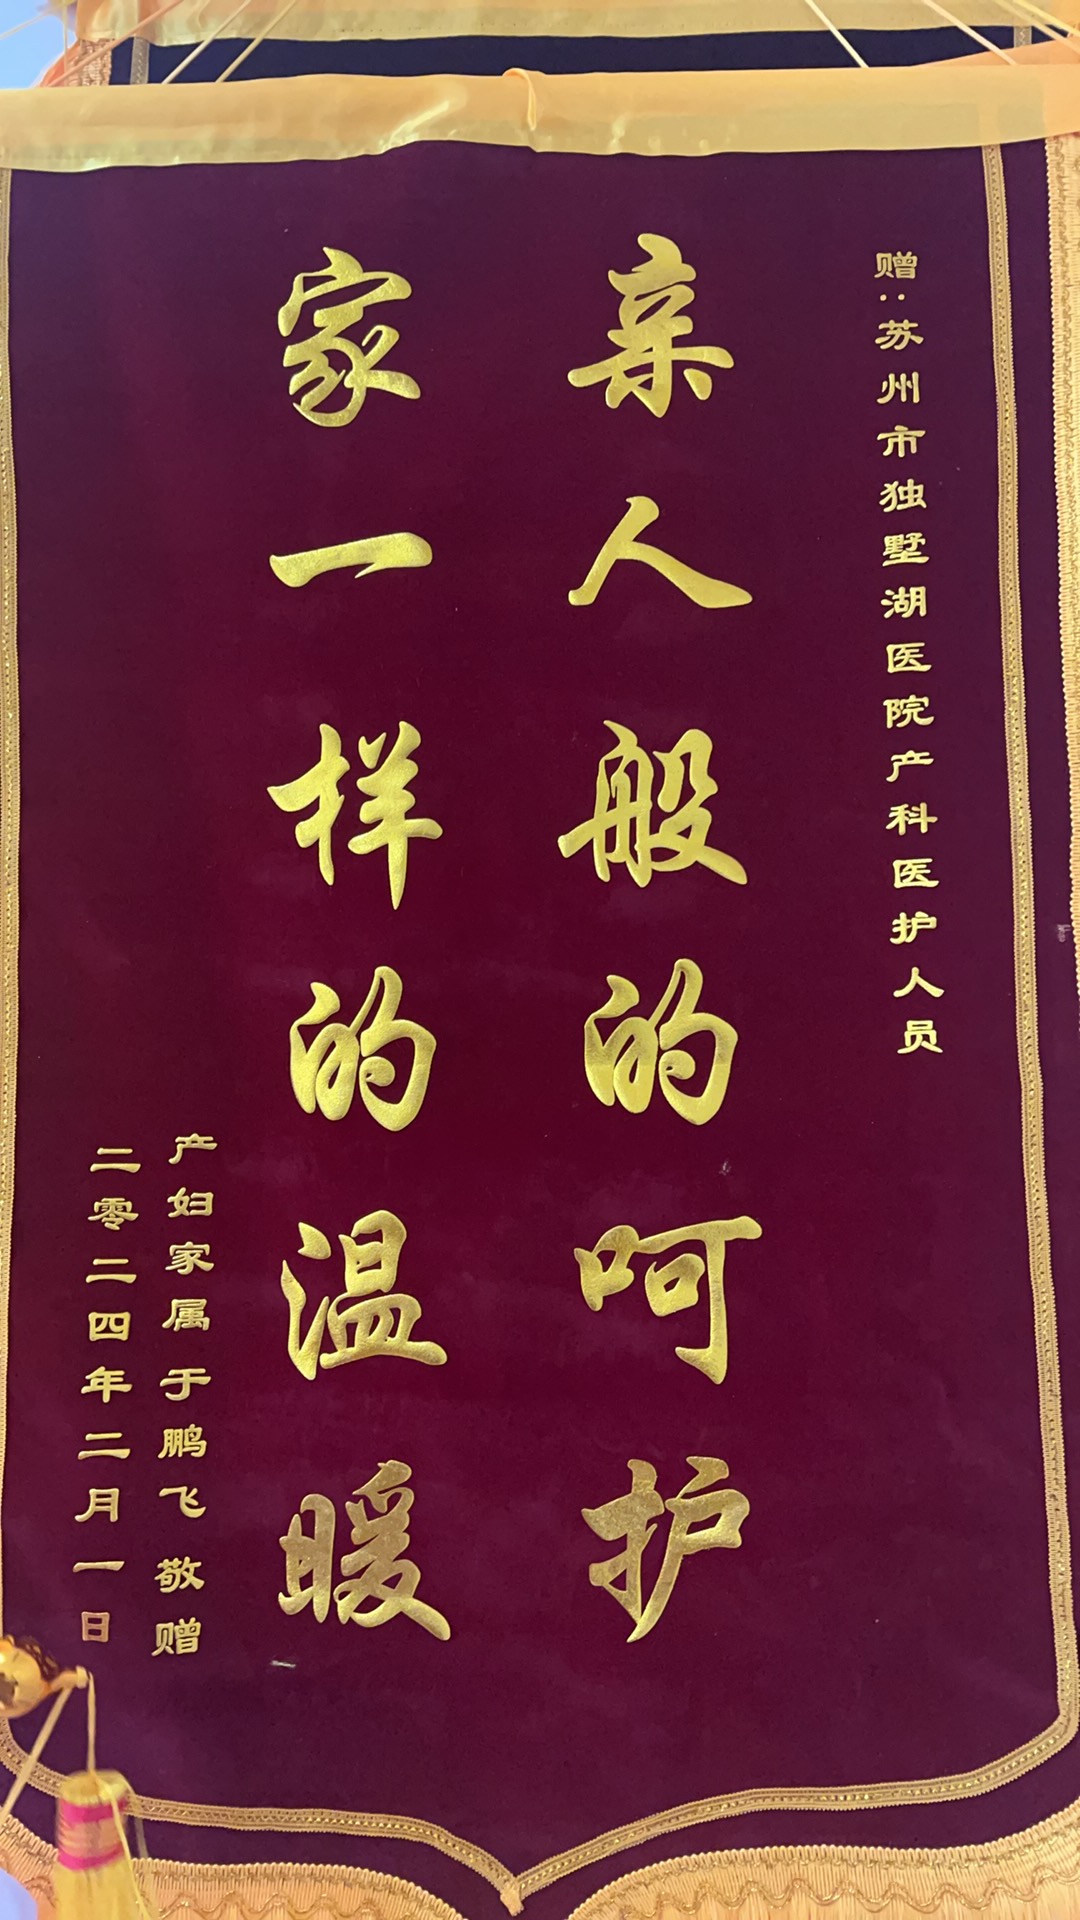 赠:苏州市独墅湖医院产科医护人员
亲人般的呵护
家一样的温暖
产妇家属于鹏飞 敬赠
二零二四年二月一日